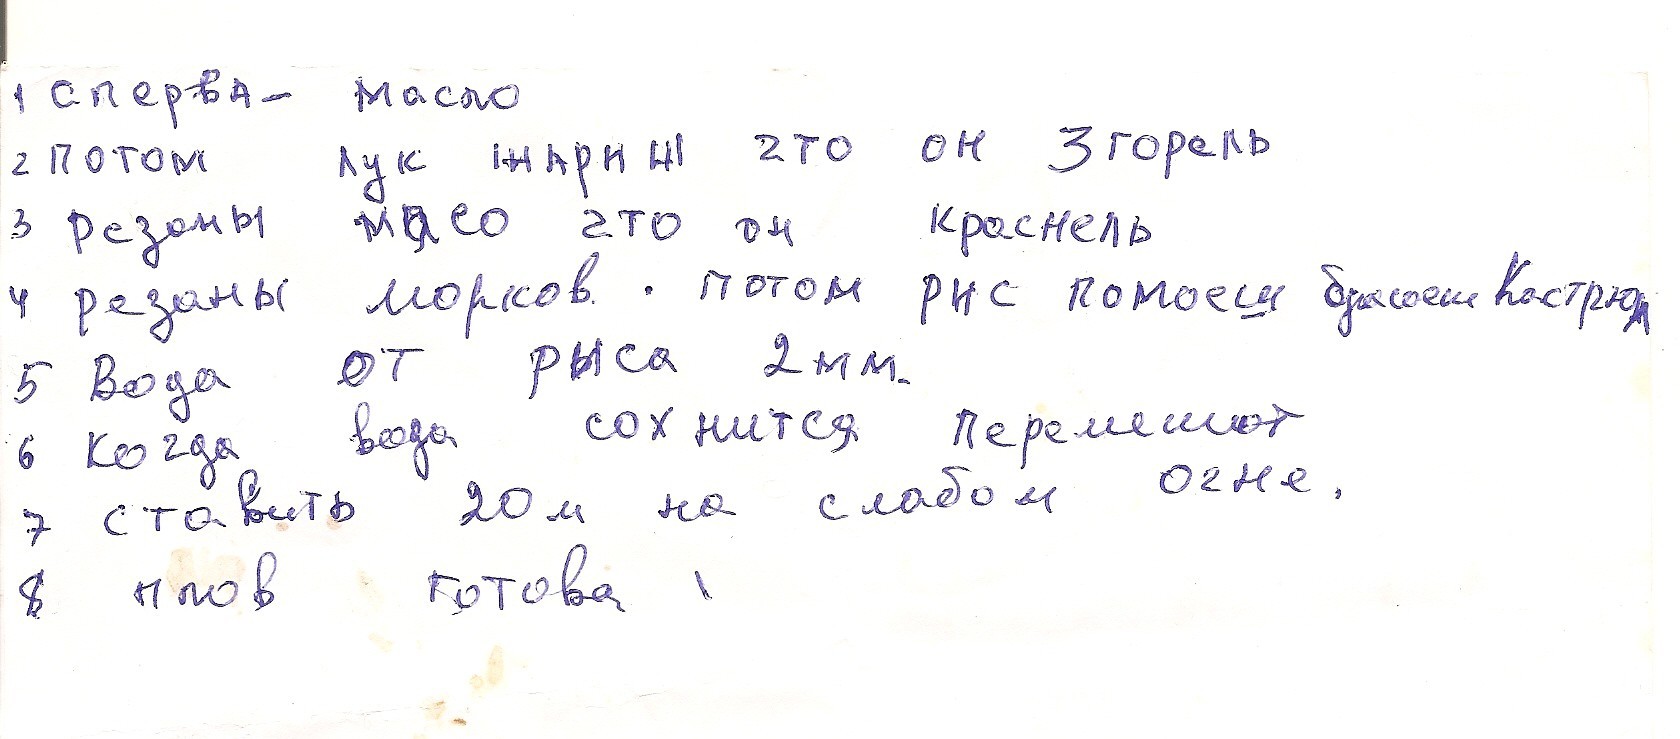 1 сперва - масло
2 потом лук жариш что он згорель
3 резаны масо что он краснель
4 резаны морков. потом рис помоеш Кастрюл
5 Вода от рыса 2мм.
6 Когда вода сохнится перемешот
7 ставить 20м на слабом огне.
8 плов готова